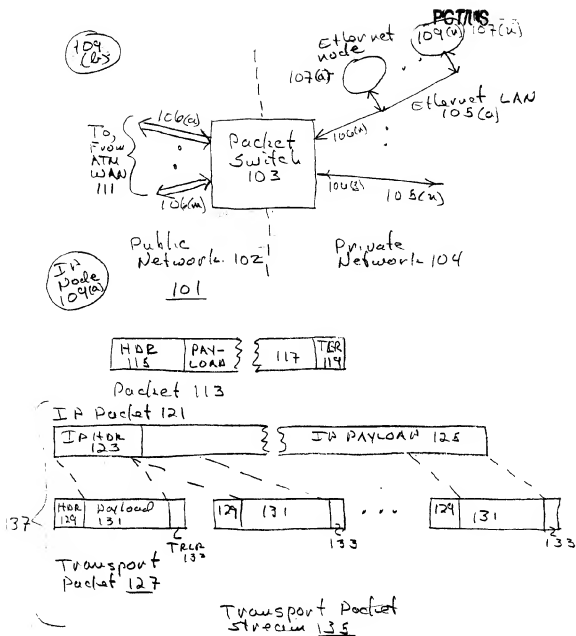 PCT/US
109
(b)
Ethernet
node
107(a)
109(n)
107(n)
Ethernet LAN
105(a)
106(a)
To,
From
ATM
WAN
111
Packet
Switch
103
106(m)
105(n)
Public
Network 102
Private
Network 104
101
IP
Node
109(a)
HDR
115
PAY-
LOAD
117
TRR
119
Packet 113
IP Packet 121
IP HDR
123
IP PAYLOAD 125
HDR
129
Payload
131
129
131
129
131
137
TRLR
133
133
133
Transport
Packet 127
Transport Packet
Stream 135